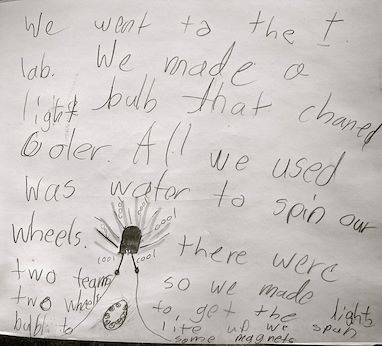 We went to the I.
lab. We made a
light bulb that chaned
Coler. All we used
was water to spin our
wheels. there were
two teams so we made
two wheels to get the lights
bulb to lite up we spun
some magnets.
cool
cool
cool
cool